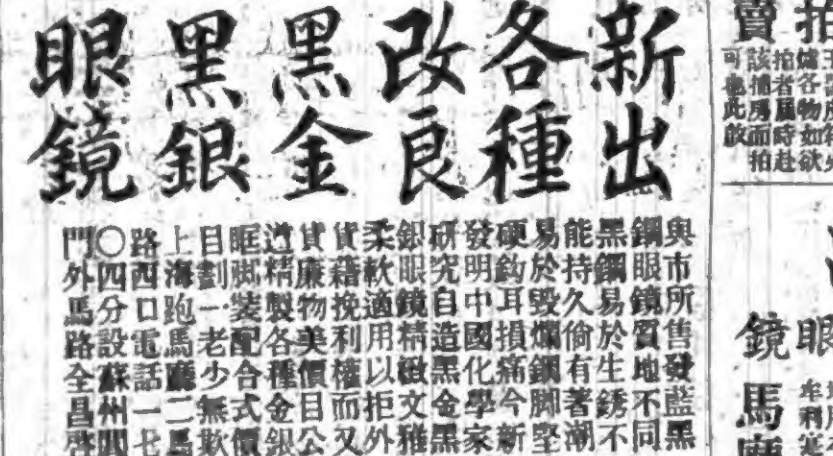 新出
各種
改良
黑金
黑銀
眼鏡
與市所售發藍黑
鋼眼鏡質地不同
黑鋼易於生銹不
能持久倘有著潮
易於毀爛鋼脚堅
硬鈎耳損痛今新
發明中國化學家
研究自造黑金黑
銀眼鏡精緻文雅
柔軟適用以拒外
貨藉挽利權而又
貨廉物美價目公
道精製各種金銀
眶脚裝配合式價
目劃一老少無欺
上海跑馬廳二馬
路西口電話一七
〇四分設蘇州閶
門外馬路全昌啓
拍賣
各物如欲
拍者屆時赴
該捕房面拍
可也此啟
眼鏡
馬